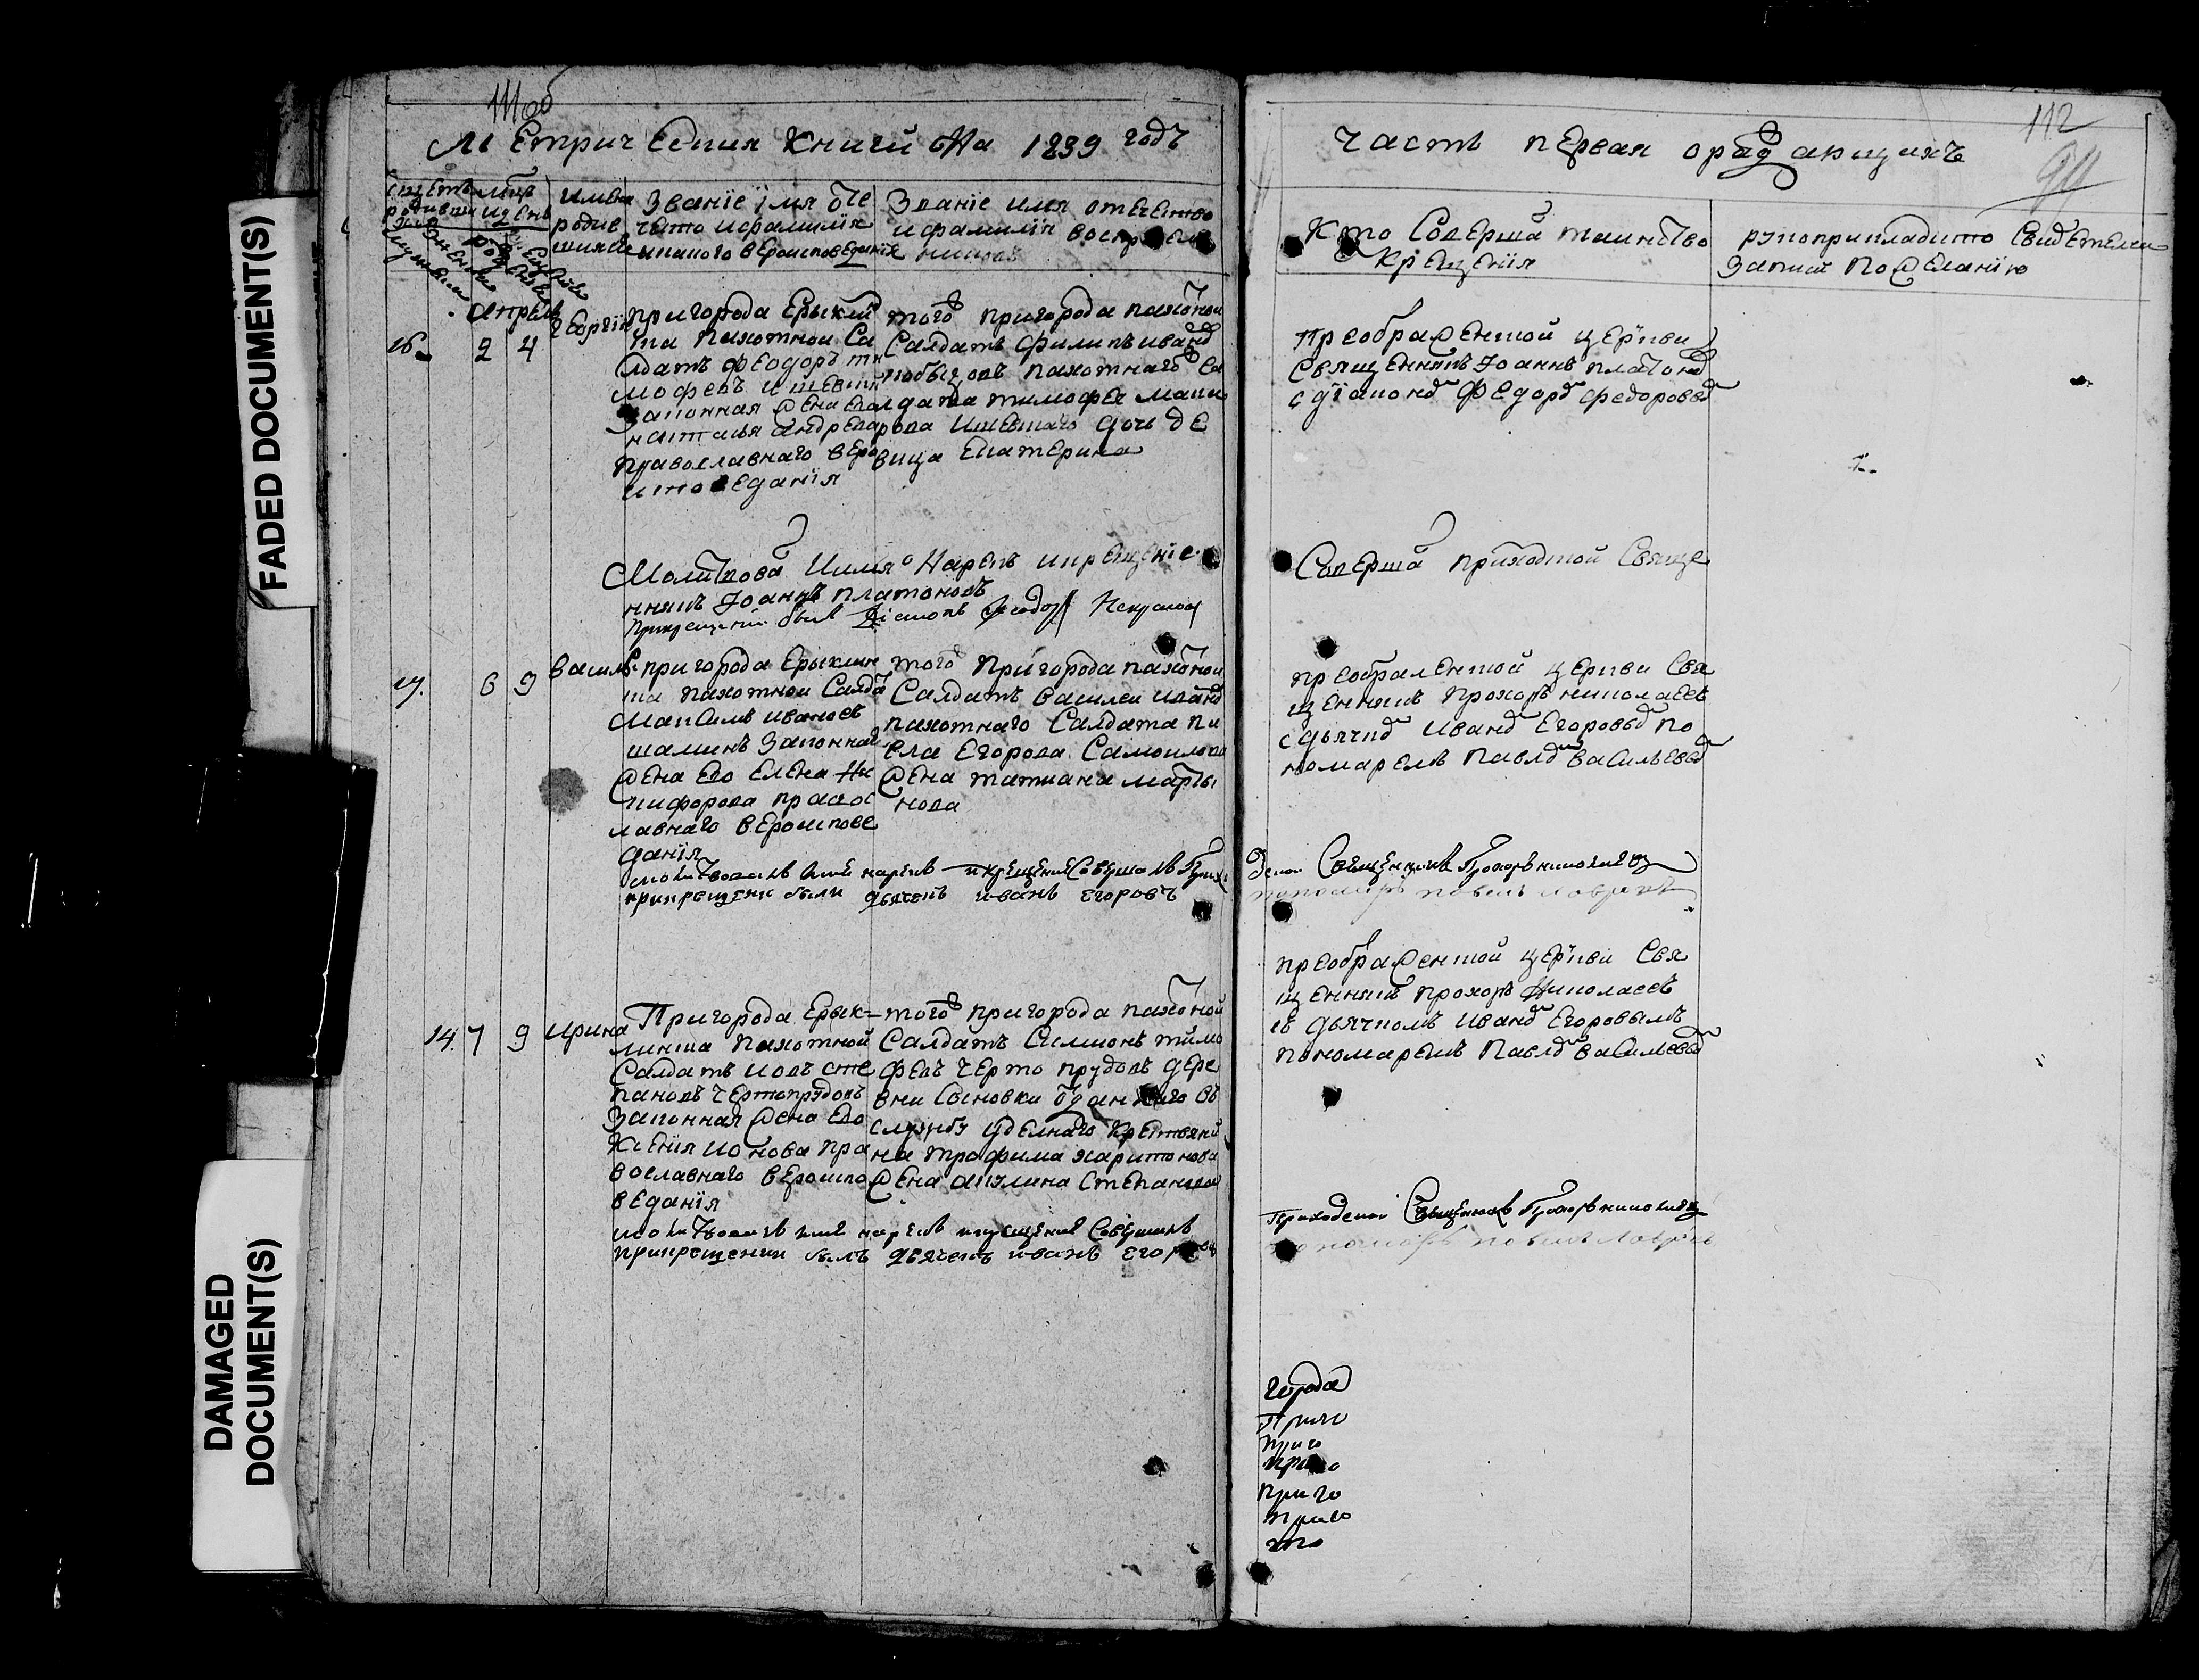 111 об
Метрической Книги На 1839 годъ
Щетъ родивши
Мцъ и день
имена родив шихся
Званїе їмя оте
чество и фамилїя
и какого вероисповеданїя
Званїе имя отечество
и фамилїя восприем
ников
мужеска
женска
рожденїя
крещенїя
апрель
16
2 4
Георгїи
пригорода Ерыкли
ска пахотнои Са
лдатъ Феодоръ ти
мофеевъ
законная жена его
наталья андреева
православнаго веро
исповеданїя
того пригорода пахотнои
Салдатъ филипъ ивановъ
пахотнаго са
лдата тимофея мака
рова дочь де
вица Екатерина
Молитвова и имя нарекъ и крещенїе
нникъ Иоаннъ платоновъ
при крещении былъ дїаконъ Феодоръ Некрасов
17.
6 9
василий
пригорода Ерыклин
ска пахотнои Салда
Максимъ ивановъ
шаминъ законная
жена его Елена Ни
кифорова правос
лавнаго вероиспове
данїя
того пригорода пахотнои
Салдатъ василеи иванов
пахотнаго Салдата па
вла Егорова Самоилова
жена татиана марты
нова
молитвовалъ имя нарекъ и крещение Совершалъ Прихо
при крещении были дьячекъ иванъ егоровъ
14. 7 9
ирина
Пригорода Ерык-
линска пахотной
Салдатъ иовъ сте
пановъ чертопрудовъ
законная жена его
Ксенїя ионова пра
вославнаго вероиспо
веданїя
того пригорода пахотной
Салдатъ Симионъ тимо
феевъ чертопрудовъ дере
вни Сосновки отданнаго въ
службу уделнаго крестьяни
на трофима харитонова
жена акулина Степанова
молитвовалъ имя нарекъ и крещение Совершалъ
при крещении былъ дьячекъ иванъ егоровъ
112
Часть первая о раждающихъ
Кто Соверша таинство
крещенїя
рукоприкладство Свидетелеи
записи по желанїю
преображенской церкви
Священникъ Иоаннъ платонов
с дїаконом Федором федоровым
Соверша приходской Свяще
преображенской церкви Свя
щенникъ прохоръ николаевъ
с дьячком Иваном Егоровым по
номаремъ Павлом Васильевым
дской Священникъ Прохоръ николаев
пономаръ павелъ
преображенской церкви Свя
щенникъ прохоръ Николаевъ
съ дьячкомъ Иваном Егоровымъ
пономаремъ Павлом Васильевым
Приходской Священникъ Прохоръ николаев
пономаръ павелъ
города
Приго
приго
приго
приго
приго
FADED DOCUMENT(S)
DAMAGED
DOCUMENT(S)